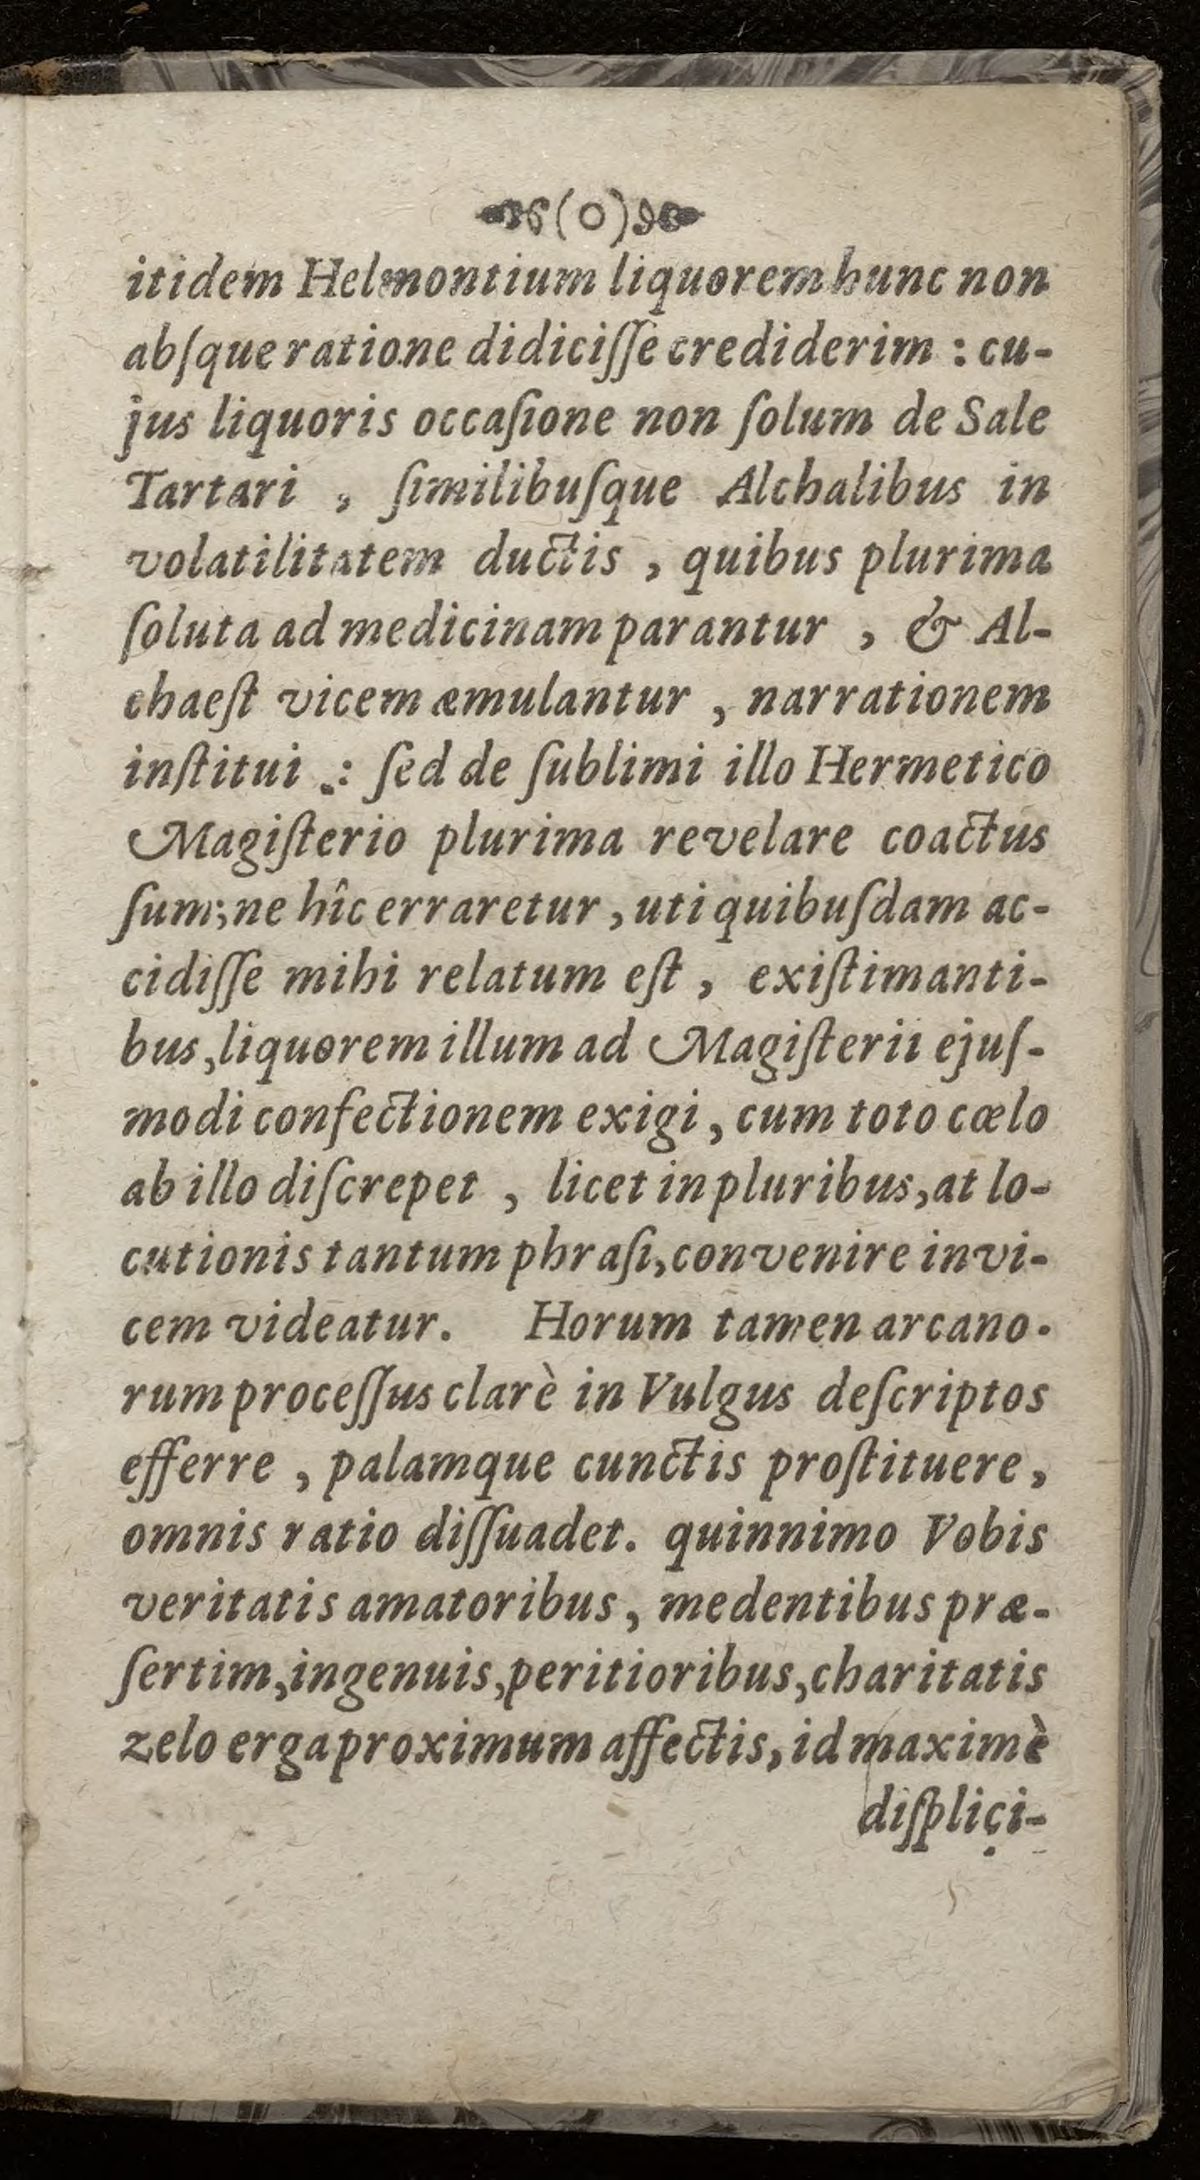 (O)
itidem Helmontium liquorem hunc non
abſque ratione didiciſſe crediderim : cu-
jus liquoris occaſione non ſolum de Sale
Tartari , ſimilibuſque Alchalibus in
volatilitatem ductis , quibus plurima
ſoluta ad medicinam parantur , & Al-
chaeſt vicem æmulantur , narrationem
inſtitui .: ſed de ſublimi illo Hermetico
Magiſterio plurima revelare coactus
ſum; ne hîc erraretur , uti quibuſdam ac-
cidiſſe mihi relatum eſt , exiſtimanti-
bus, liquorem illum ad Magiſterii ejuſ-
modi confectionem exigi , cum toto cœlo
ab illo diſcrepet , licet in pluribus, at lo-
cutionis tantum phraſi, convenire invi-
cem videatur. Horum tamen arcano-
rum proceſſus clarè in Vulgus deſcriptos
efferre , palamque cunctis proſtituere ,
omnis ratio diſſuadet. quinnimo Vobis
veritatis amatoribus , medentibus præ-
ſertim, ingenuis, peritioribus, charitatis
zelo erga proximum affectis, id maximè
diſplici-